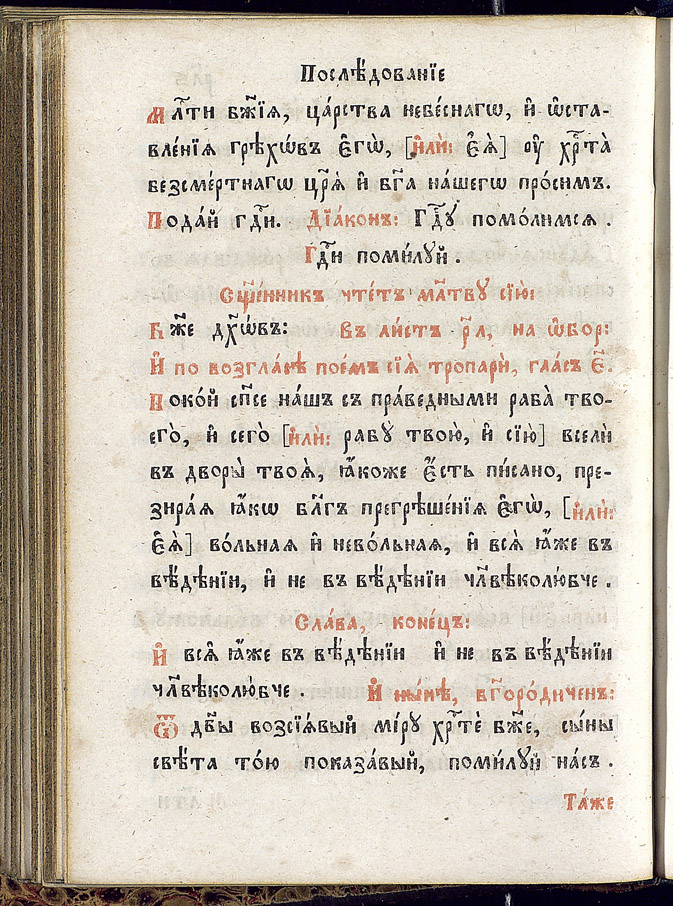 Послѣ́дованїе
Ми́лⷭ҇ти бж҃їѧ, ца́рства небе́снагѡ, и҆ ѡ҆ста-
вле́нїѧ грѣхѡ́въ є҆гѡ̀, [и҆лѝ: є҆ѧ̀] оу҆ хрⷭ҇та̀
безсме́ртнагѡ црѧ̀ и҆ бг҃а на́шегѡ про́симъ.
Пода́й гдⷭ҇и. Дїа́конъ: Гдⷭ҇ꙋ помо́лимсѧ.
Гдⷭ҇и поми́лꙋй.
Сщ҃е́нникъ чте́тъ мл҃твꙋ сїю̀:
Бж҃е дꙋхѡ́въ: Въ ли́стъ рл҃, на ѡ҆бор:
И҆ по возгла́сѣ пое́мъ сїѧ̀ тропарѝ, гла́съ є҃.
Поко́й сп҃се на́шъ съ пра́ведными раба̀ тво-
его̀, и҆ сего̀ [и҆лѝ: рабꙋ̀ твою̀, и҆ сїю̀] вселѝ
въ дворы̀ твоѧ̑, ꙗ҆́коже є҆́сть пи́сано, пре-
зира́ѧ ꙗ҆́кѡ бл҃гъ прегрѣше́нїѧ є҆гѡ̀, [и҆лѝ:
є҆ѧ̀] во́льнаѧ и҆ нево́льнаѧ, и҆ всѧ̑ ꙗ҆̀же въ
вѣ́дѣнїи, и҆ не въ вѣ́дѣнїи чл҃вѣколю́бче.
Сла́ва, коне́цъ:
И҆ всѧ̑ ꙗ҆̀же въ вѣ́дѣнїи и҆ не въ вѣ́дѣнїи
чл҃вѣколю́бче. И҆ ны́нѣ, бг҃оро́диченъ:
Ѿ дв҃ы возсїѧ́вый мі́рꙋ хрⷭ҇тѐ бж҃е, сы́ны
свѣ́та то́ю показа́вый, поми́лꙋй на́съ.
Та́же